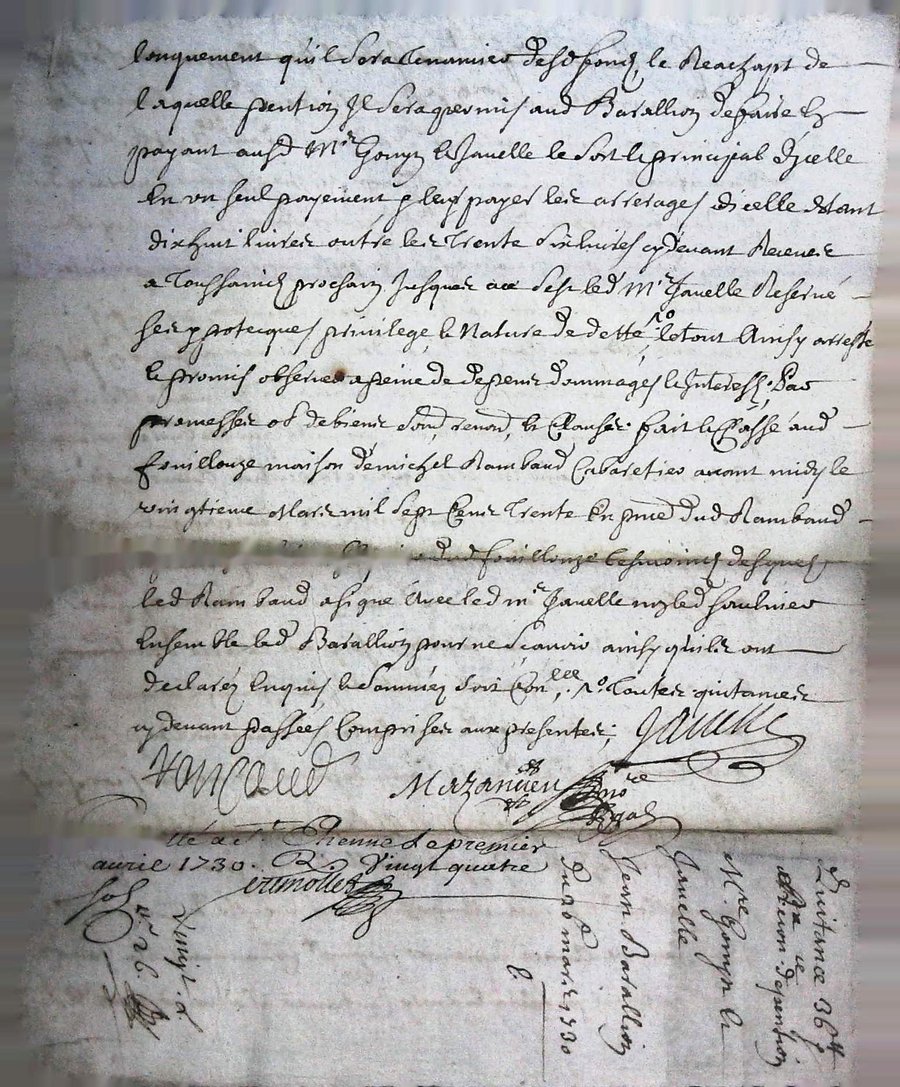 longuement qu'il sera tenancier desd fondz, le Reachapt de
laquelle pention Il sera permis aud Barallion de faire En
payant ausd Mrs Gonyn & Javelle le sort & principal dycelle
En un seul payement & leur payer les arrerages dicelle étant
dixhuit livres outre les trente six livres cydevant Receues
a Toussainctz prochain Jusques a ce led Mr Javelle Reservé
ses ypotecques privilege & Nature de dette, le tout Ainsy arresté
& promis observer a peine de depens dommages & Interestz, Par
promesses ob de biens renond, & Clauses fait & Passé aud
fouillouze maison de michel Rambaud Cabaretier avant midy le
vingtieme Mars mil sept Cens Trente En pnce dud Rambaud
dud fouillouze tesmoins desquels
led Rambaud a signé avec led mr Javelle non led
Ensemble led Barallion pour ne Scavoir ainsy quils ont
declaréz Enquis & Sommés Toutes quitances
cydevant passées Comprises aux presentes; Javelle
Rambaud Mazandieu nore Royal
à St. Etienne le premier
avril 1730. R. Vingt quatre
sols
Quitance 36#
& pention
Mre. Gonyn &
Javelle
Jean Barallion
Du 20 mars 1730